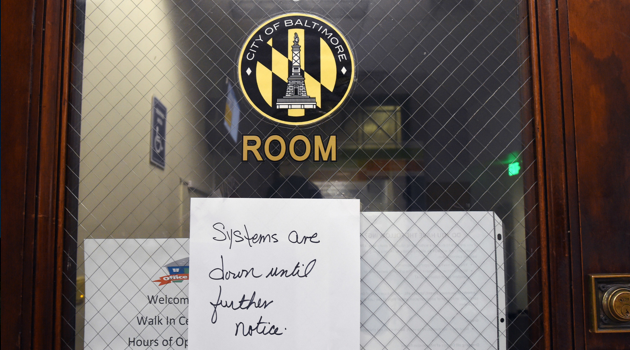 CITY OF BALTIMORE
ROOM
Systems are
down until
further
notice.
Office
Walk In
Hours of